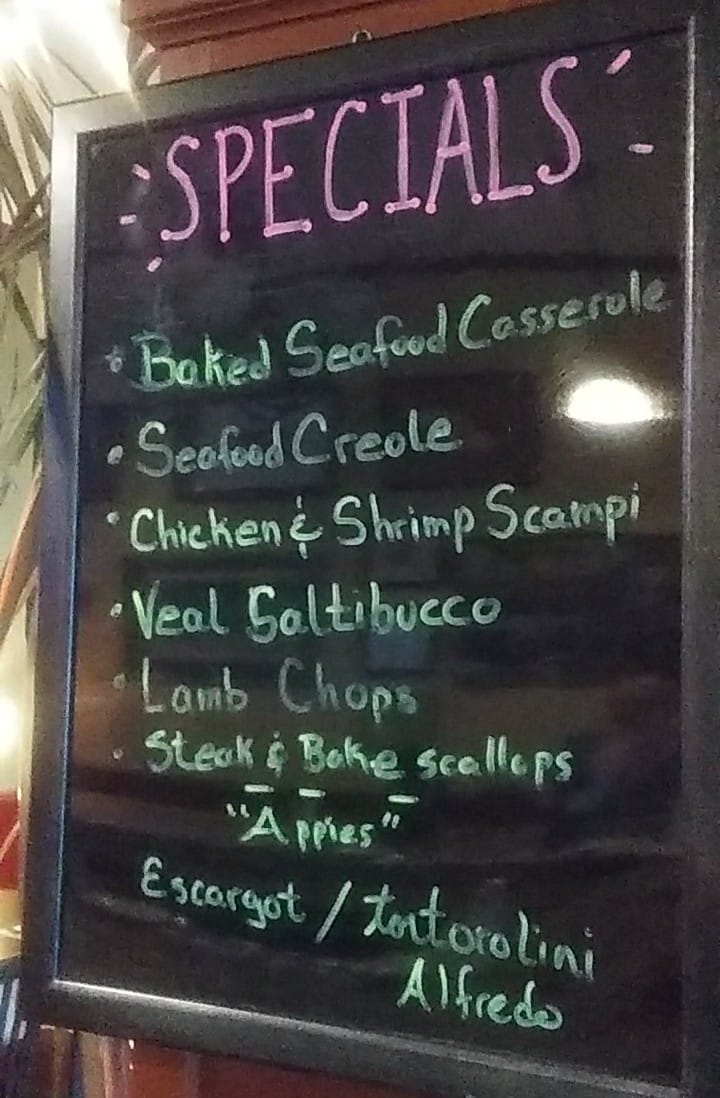 SPECIALS
Baked Seafood Casserole
Seafood Creole
Chicken & Shrimp Scampi
Veal Saltibucco
Lamb Chops
Steak & Bake scallops
"Appies"
Escargot / tortorolini
Alfredo